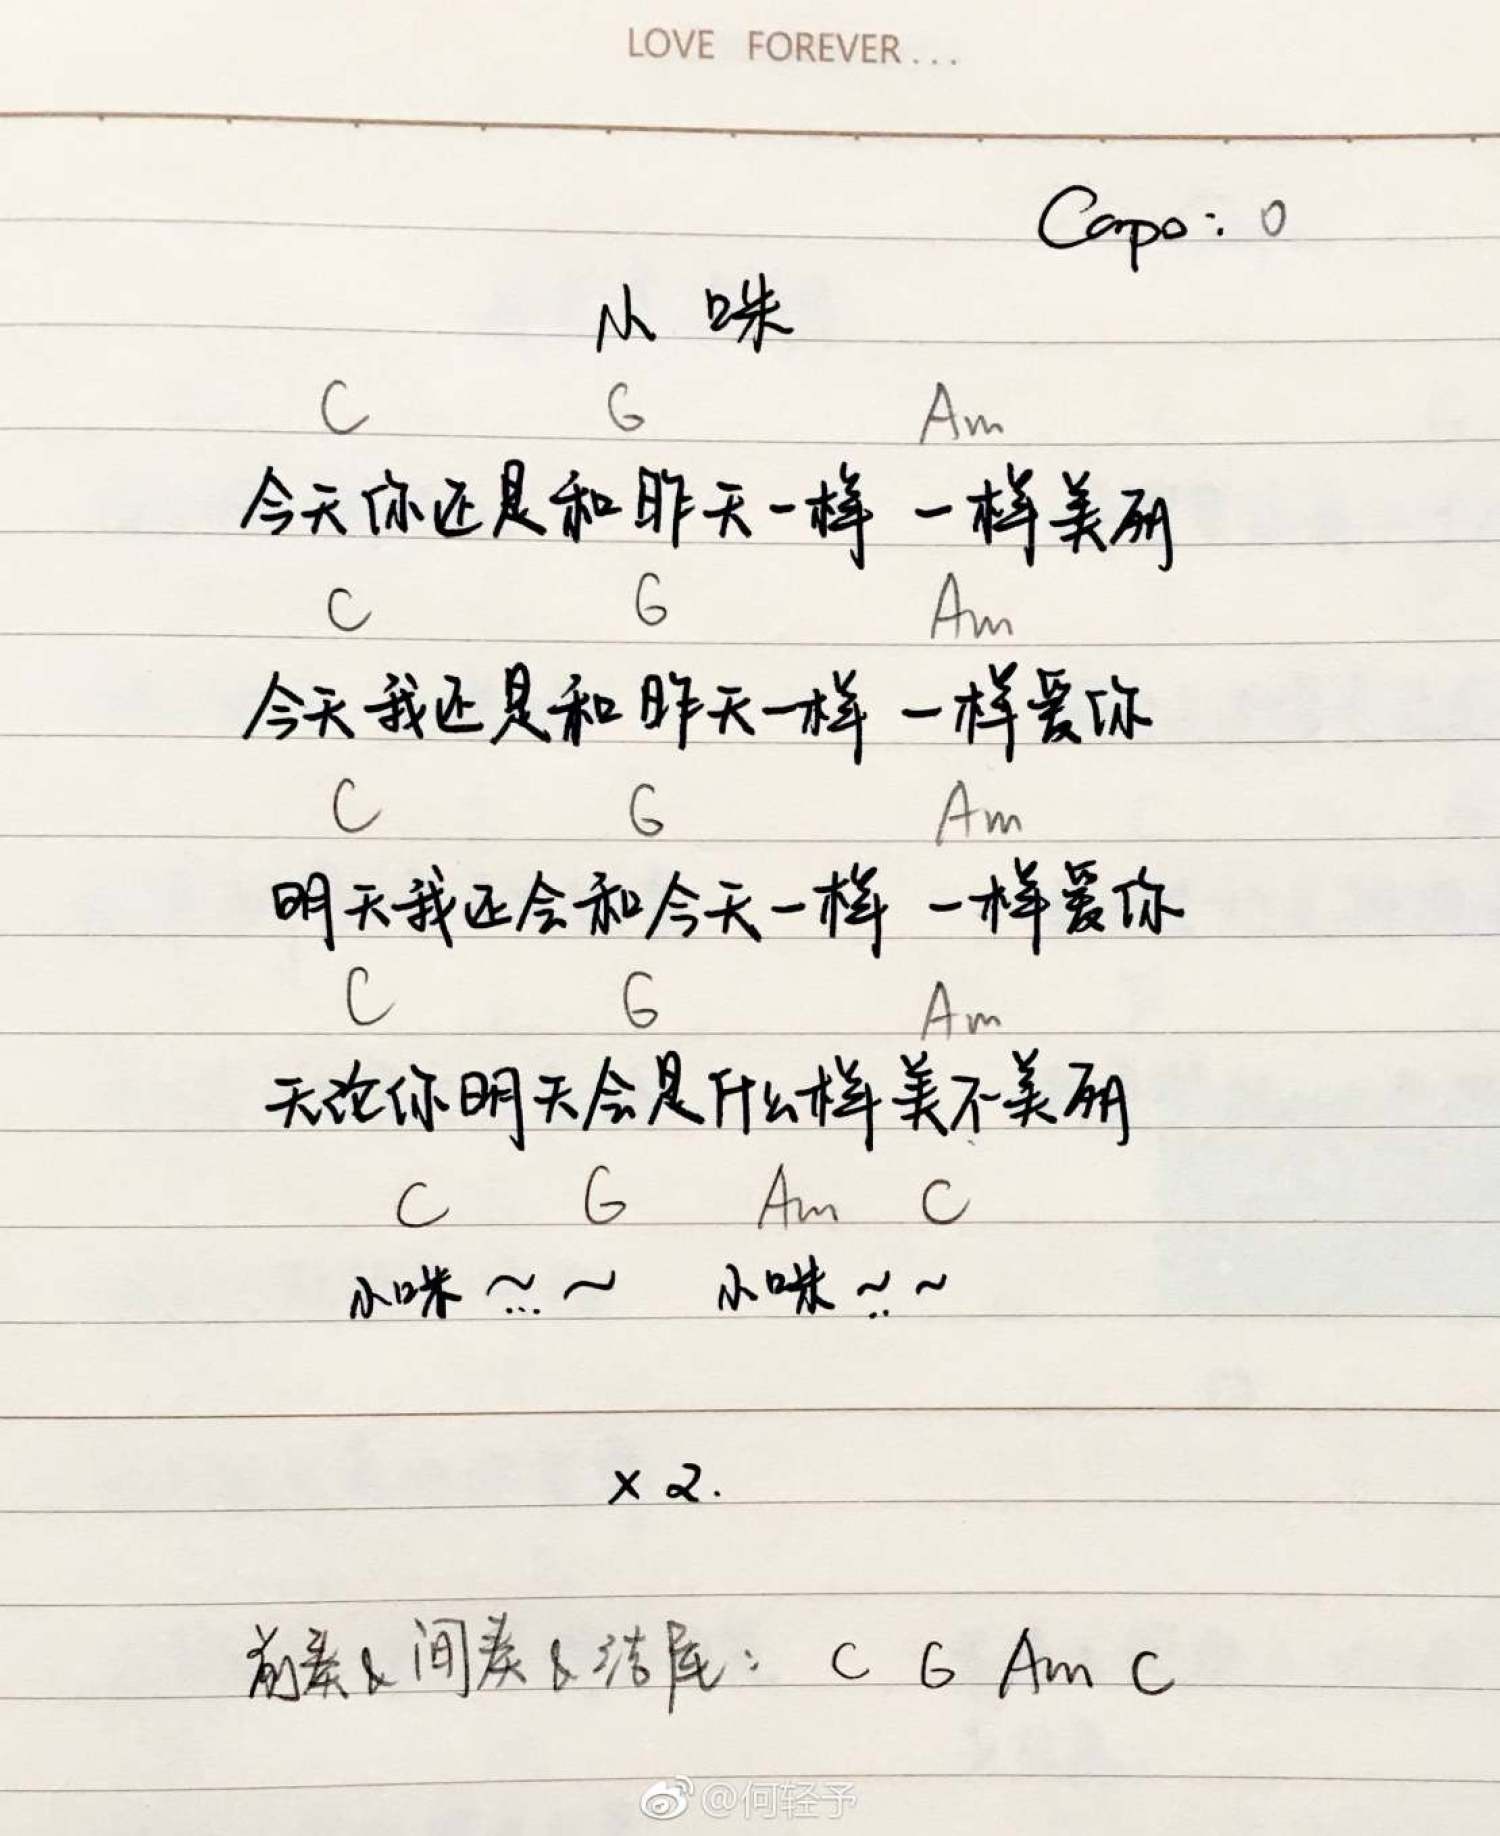 LOVE FOREVER...
Capo: 0
小咪
C G Am
今天你还是和昨天一样 一样美丽
C G Am
今天我还是和昨天一样 一样爱你
C G Am
明天我还会和今天一样 一样爱你
C G Am
无论你明天会是什么样 美不美丽
C G Am C
小咪~...~ 小咪~..~
x 2.
前奏&间奏&结尾: C G Am C
@何轻予